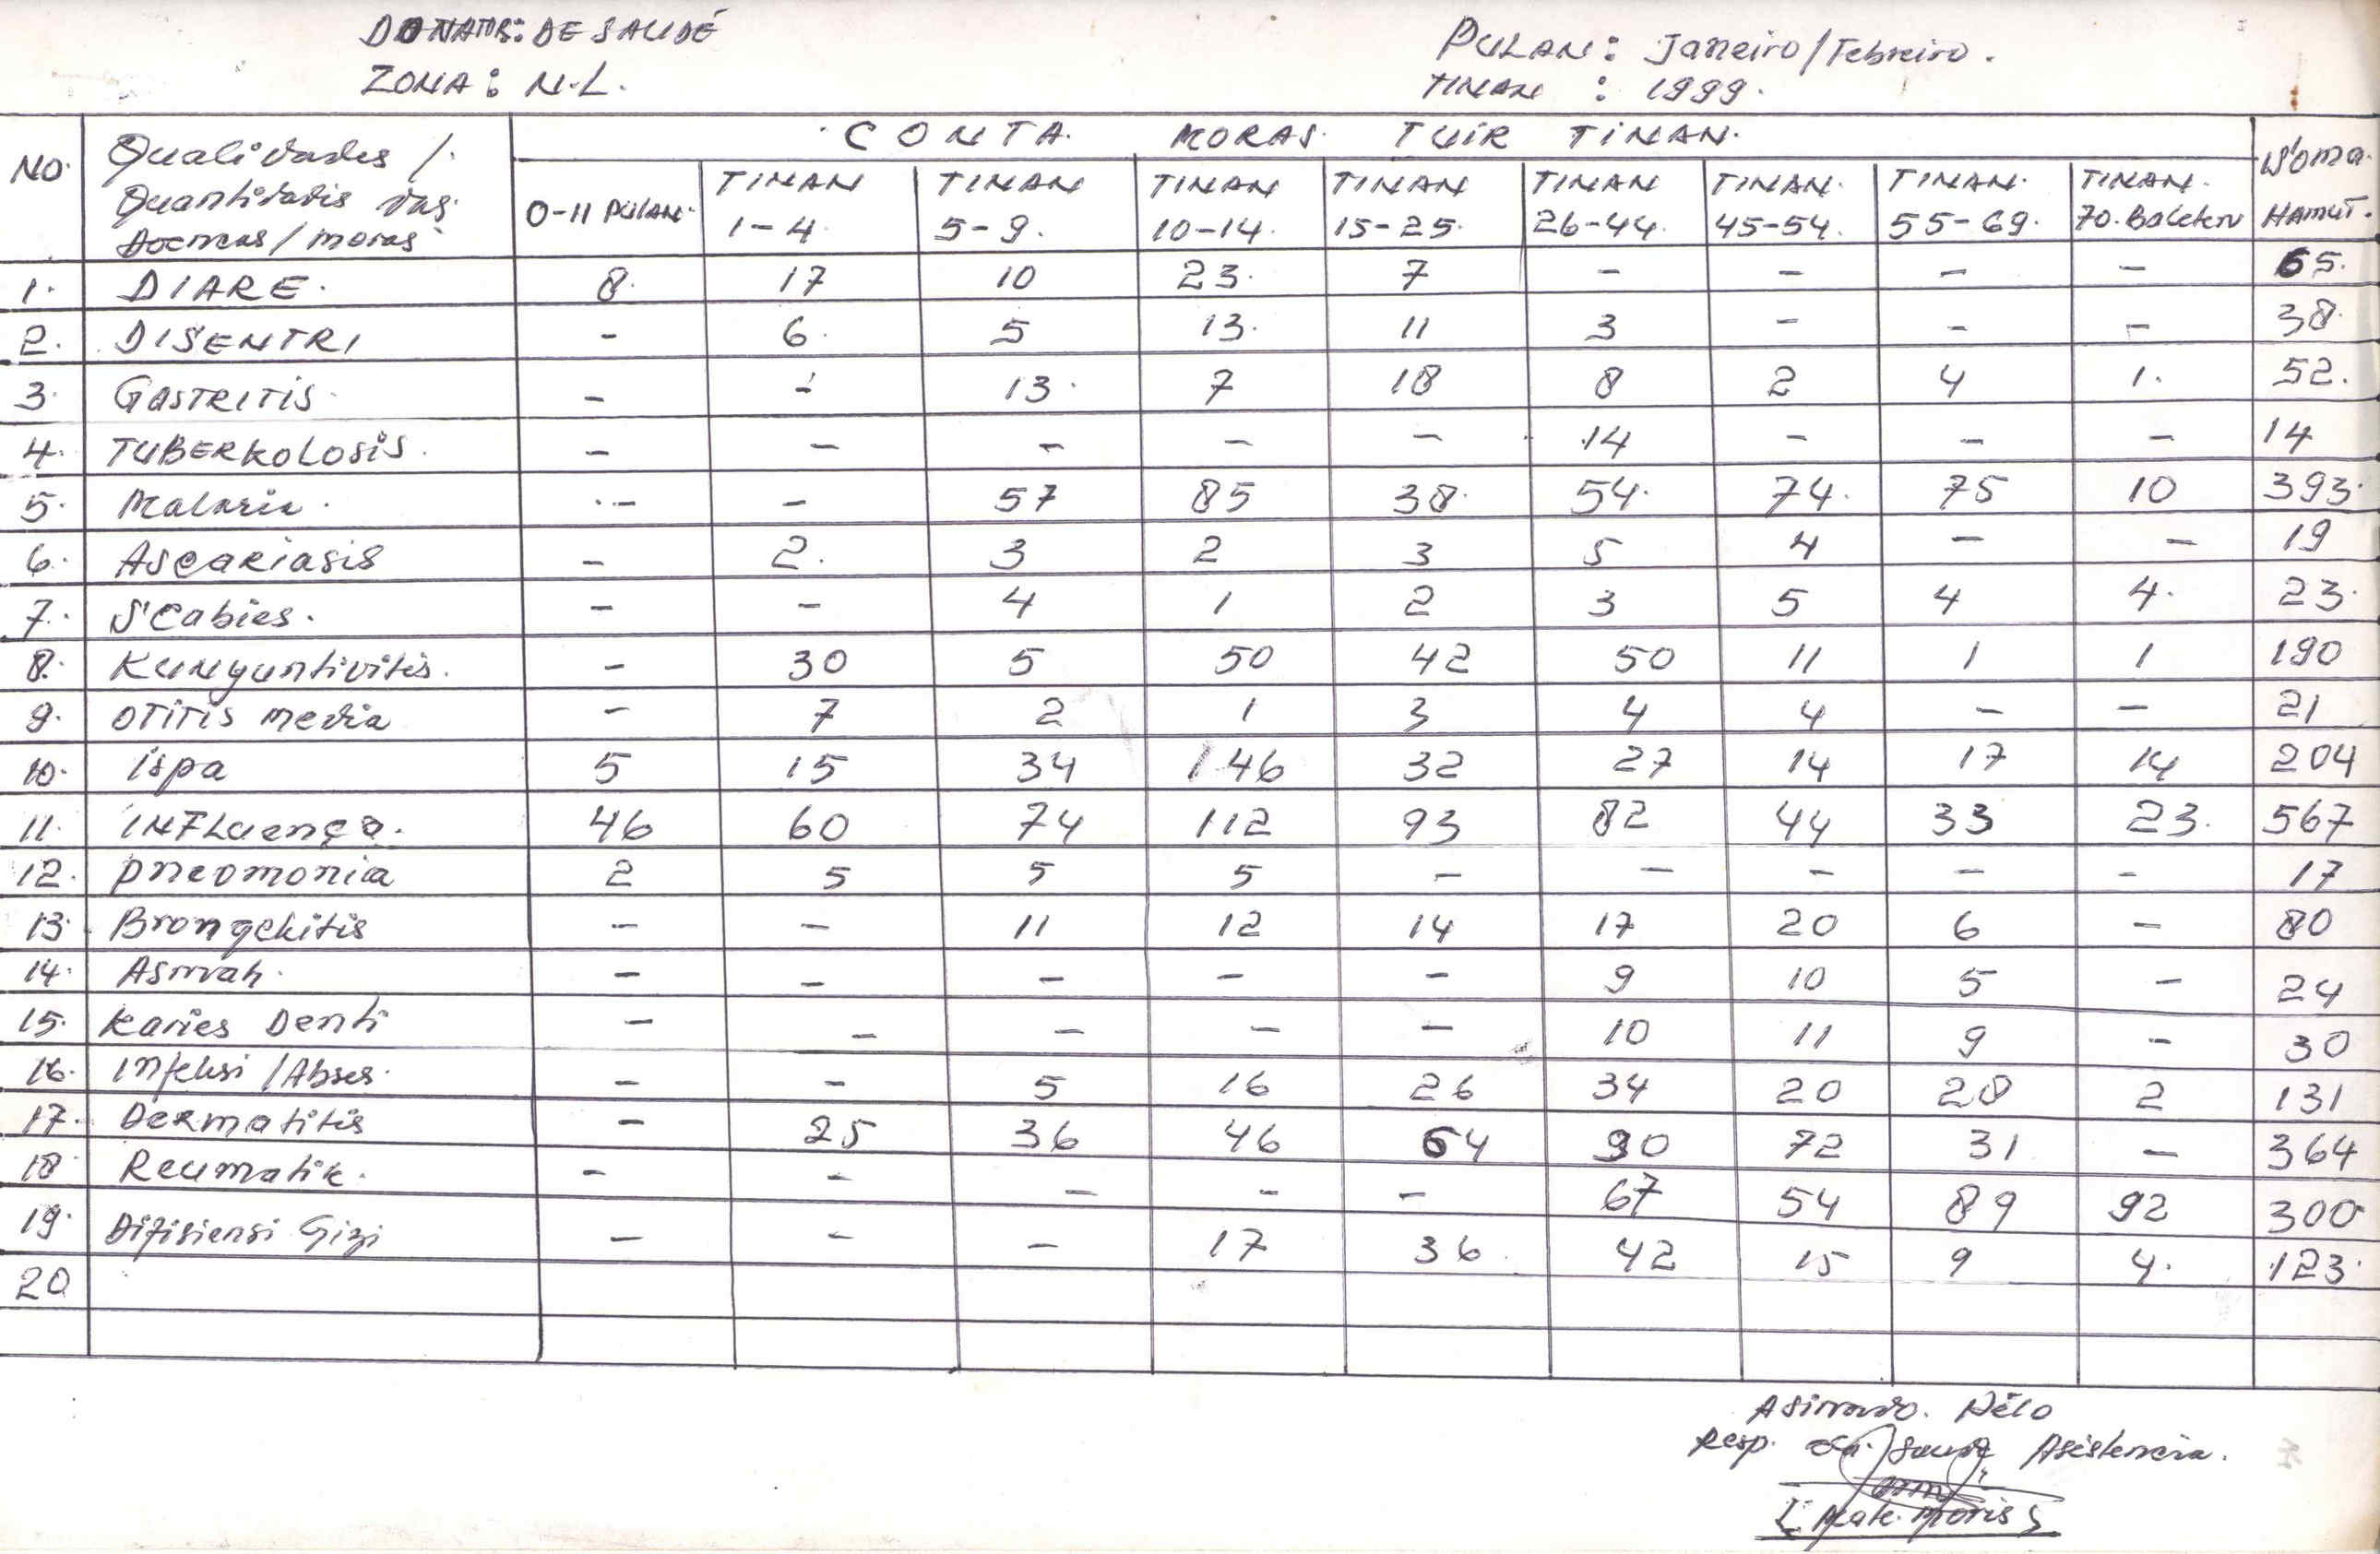 DONATOR: DE SAUDÉ
ZONA: N.L.
PULAN: Janeiro/Febreiro.
TINAN : 1999.
NO. Qualidades / Quantidadis das doencas/moras CONTA MORAS TUIR TINAN. Soma Hamut.
0-11 PULAN TINAN 1-4 TINAN 5-9. TINAN 10-14. TINAN 15-25. TINAN 26-44. TINAN. 45-54. TINAN. 55-69. TINAN. 70. Baleten
1. DIARE. 8. 17 10 23. 7 - - - - 65.
2. DISENTRI - 6. 5 13. 11 3 - - - 38.
3. GASTRITIS. - - 13. 7 18 8 2 4 1. 52.
4. TUBERKOLOSIS. - - - - - 14 - - - 14
5. Malaria. - - 57 85 38. 54. 74. 75 10 393.
6. Ascariasis - 2. 3 2 3 5 4 - - 19
7. Scabies. - - 4 1 2 3 5 4 4. 23.
8. Kunyuntivitis. - 30 5 50 42 50 11 1 1 190
9. OTITIS media - 7 2 1 3 4 4 - - 21
10. ispa 5 15 34 146 32 27 14 17 14 204
11. INFLuença. 46 60 74 112 93 82 44 33 23. 567
12. pneomonia 2 5 5 5 - - - - - 17
13. Brongchitis - - 11 12 14 17 20 6 - 80
14. Asmah. - - - - - 9 10 5 - 24
15. Karies Denti - - - - - 10 11 9 - 30
16. Infeksi /Abses. - - 5 16 26 34 20 28 2 131
17. Dermatitis - 25 36 46 64 90 72 31 - 364
18 Reumatik. - - - - - 67 54 89 92 300
19. Difisiensi Gizi - - - 17 36. 42 15 9 4. 123.
20
Asinado. Pélo
Resp. da Asistencia.